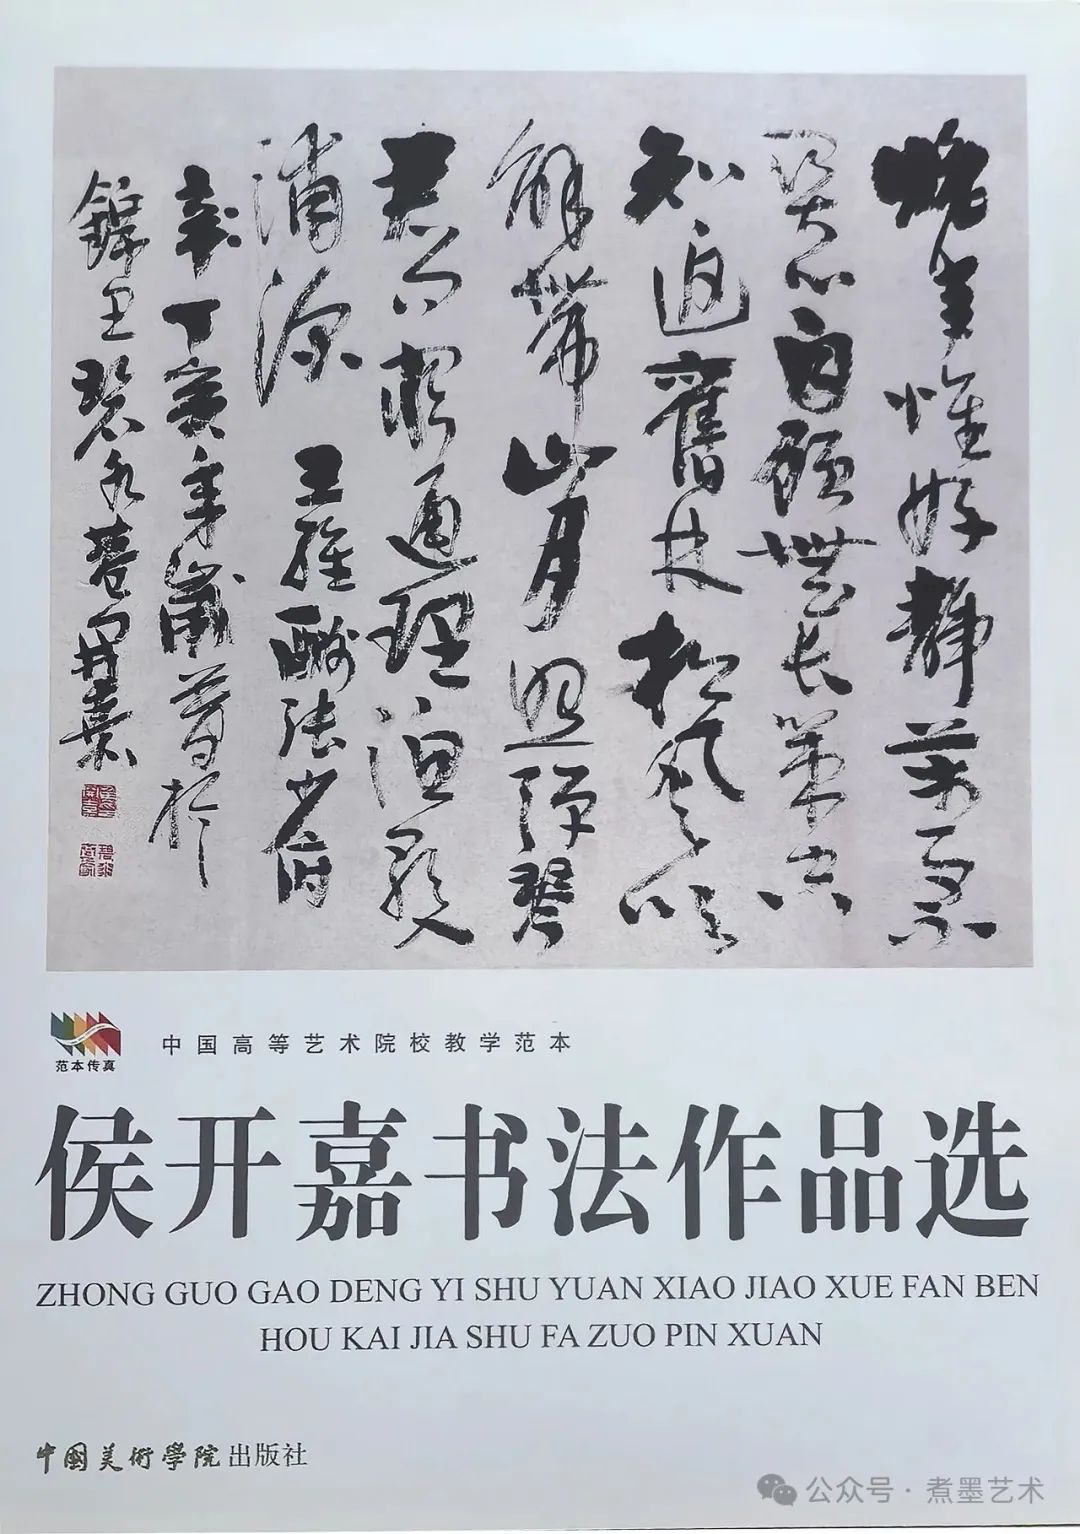 晚年惟好静萬事不
關心自顧無长策空
知返舊林松风吹
解帶山月照弹琴
君问窮通理漁歌入
浦深 王維酬張少府
丁亥年於
錦開嘉
范本传真
中国高等艺术院校教学范本
侯开嘉书法作品选
ZHONG GUO GAO DENG YI SHU YUAN XIAO JIAO XUE FAN BEN
HOU KAI JIA SHU FA ZUO PIN XUAN
中國美術學院出版社
公众号·煮墨艺术